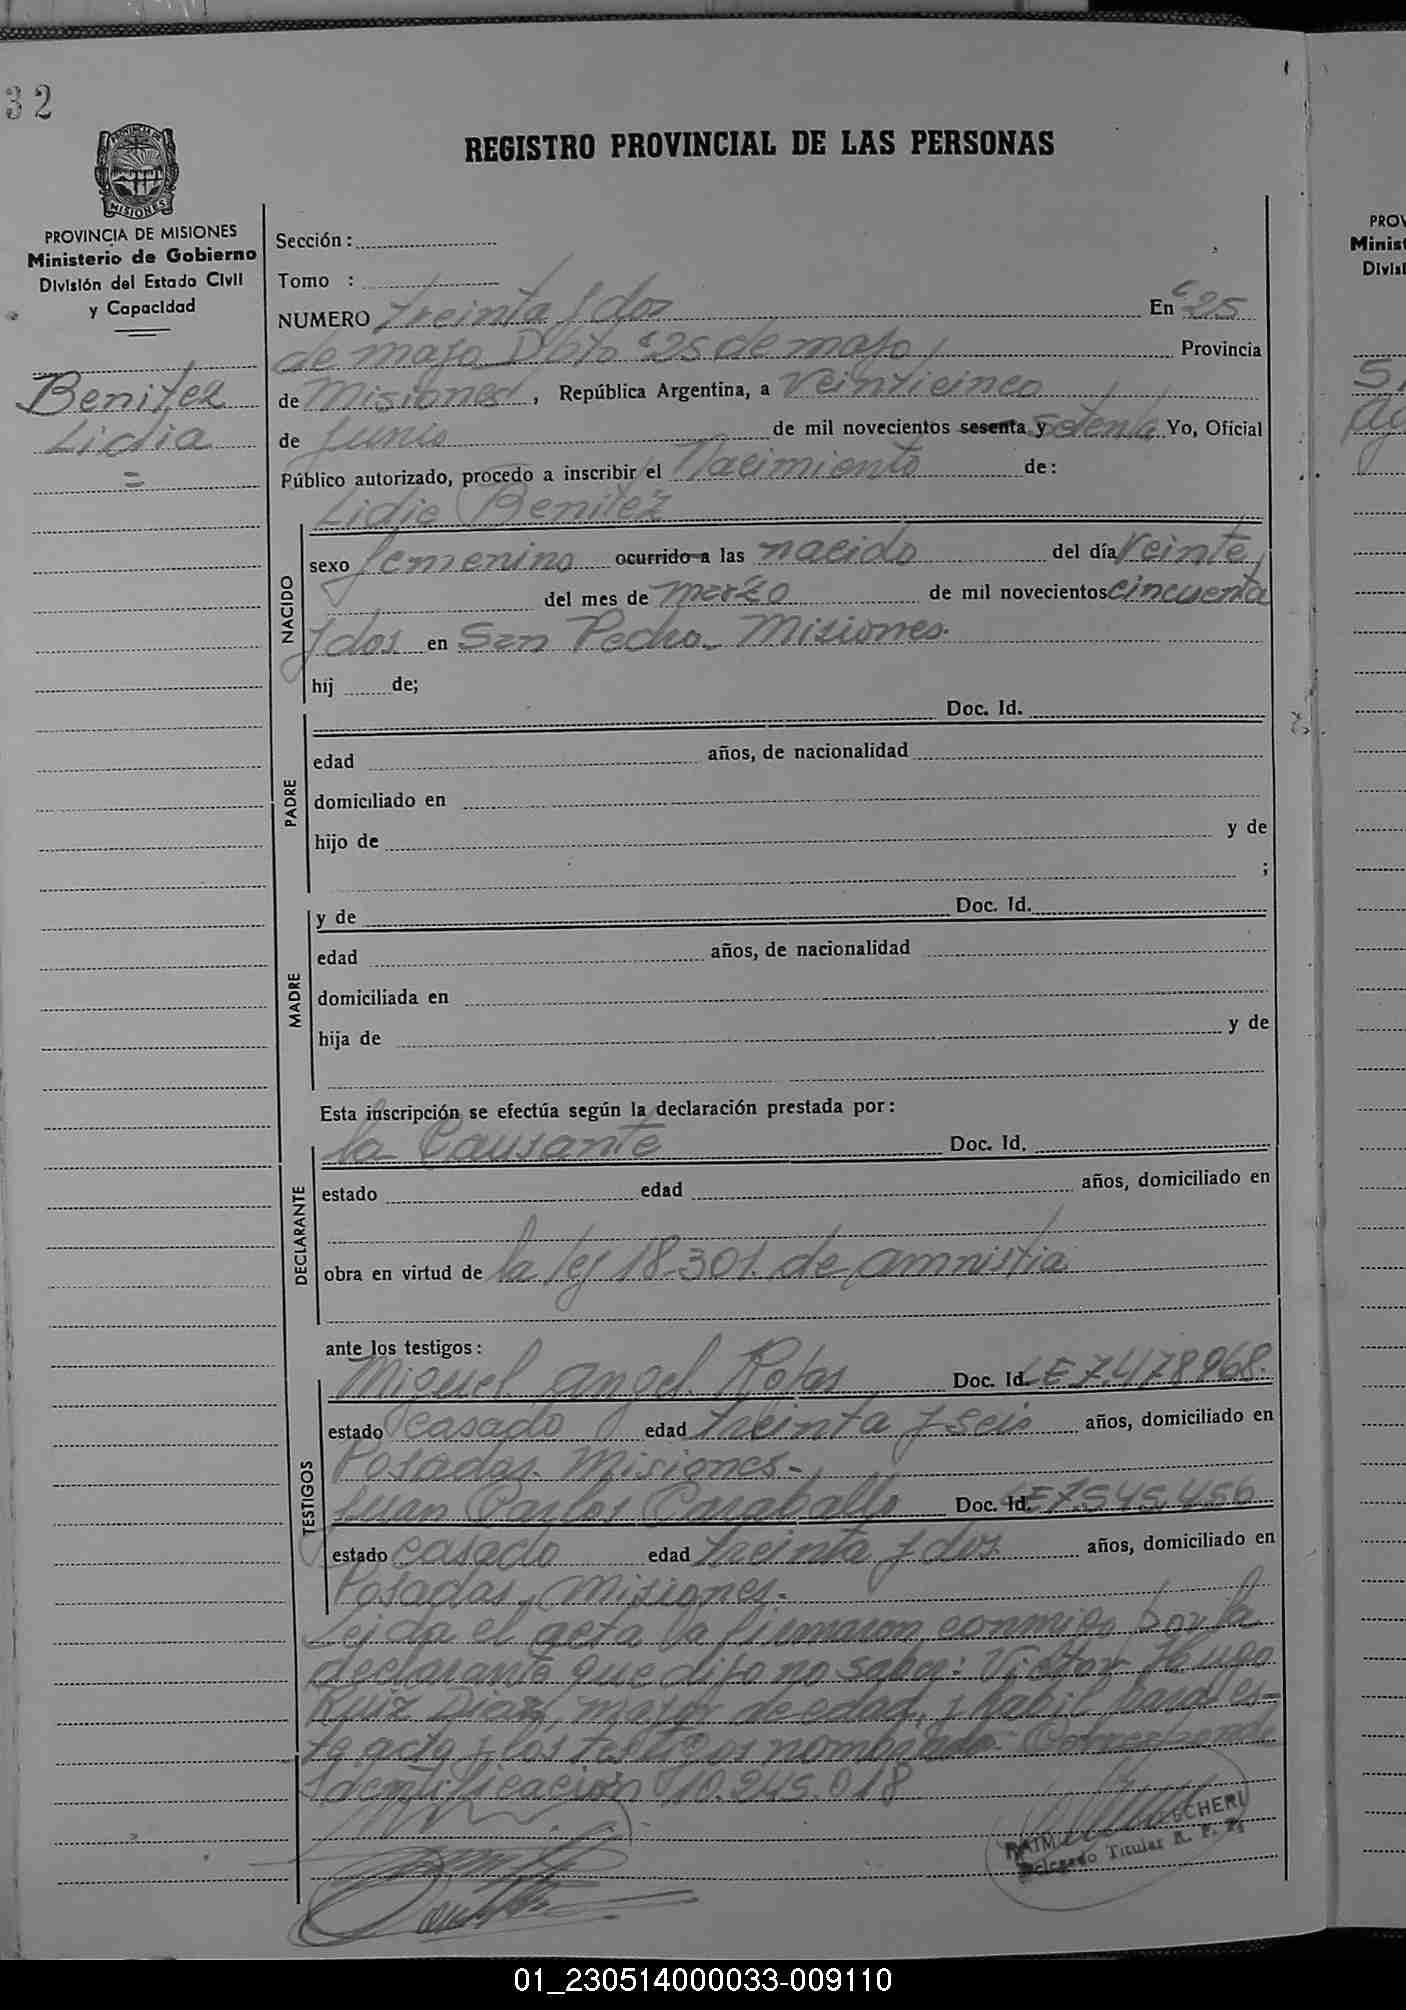 32
REGISTRO PROVINCIAL DE LAS PERSONAS
MISIONES
PROVINCIA DE MISIONES
Ministerio de Gobierno
División del Estado Civil
y Capacidad
Benitez
Lidia
=
Sección :
Tomo :
NUMERO treinta y dos En "25
de mayo Dpto "25 de mayo Provincia
de Misiones, República Argentina, a veinticinco
de Junio de mil novecientos sesenta y setenta Yo, Oficial
Público autorizado, procedo a inscribir el Nacimiento de:
Lidia Benitez
NACIDO
sexo femenino ocurrido a las nacido del día veinte
del mes de marzo de mil novecientos cincuenta
y dos en San Pedro. Misiones.
hij de;
PADRE
Doc. Id.
edad años, de nacionalidad
domiciliado en
hijo de y de
;
MADRE
y de Doc. Id.
edad años, de nacionalidad
domiciliada en
hija de y de
Esta inscripción se efectúa según la declaración prestada por:
DECLARANTE
la Causante Doc. Id.
estado edad años, domiciliado en
obra en virtud de la ley 18-301 de amnistia
ante los testigos:
TESTIGOS
Miguel angel Rojas Doc. Id. LE 7.478968.
estado casado edad treinta y seis años, domiciliado en
Posadas. Misiones-
Juan Carlos Caraballo Doc. Id. LE 7.545.456
estado casado edad treinta y dos años, domiciliado en
Posadas, Misiones.
Leida el acta la firmaron conmigo por la
declarante que dijo no saber: Victor Hugo
Ruiz Diaz, mayor de edad, y habil para es-
te acto y los testigos nombrados- Corresponde
Identificación 10.245.018
Delegado Titular R. P. P.
PROV
Minist
Divisi
01_230514000033-009110